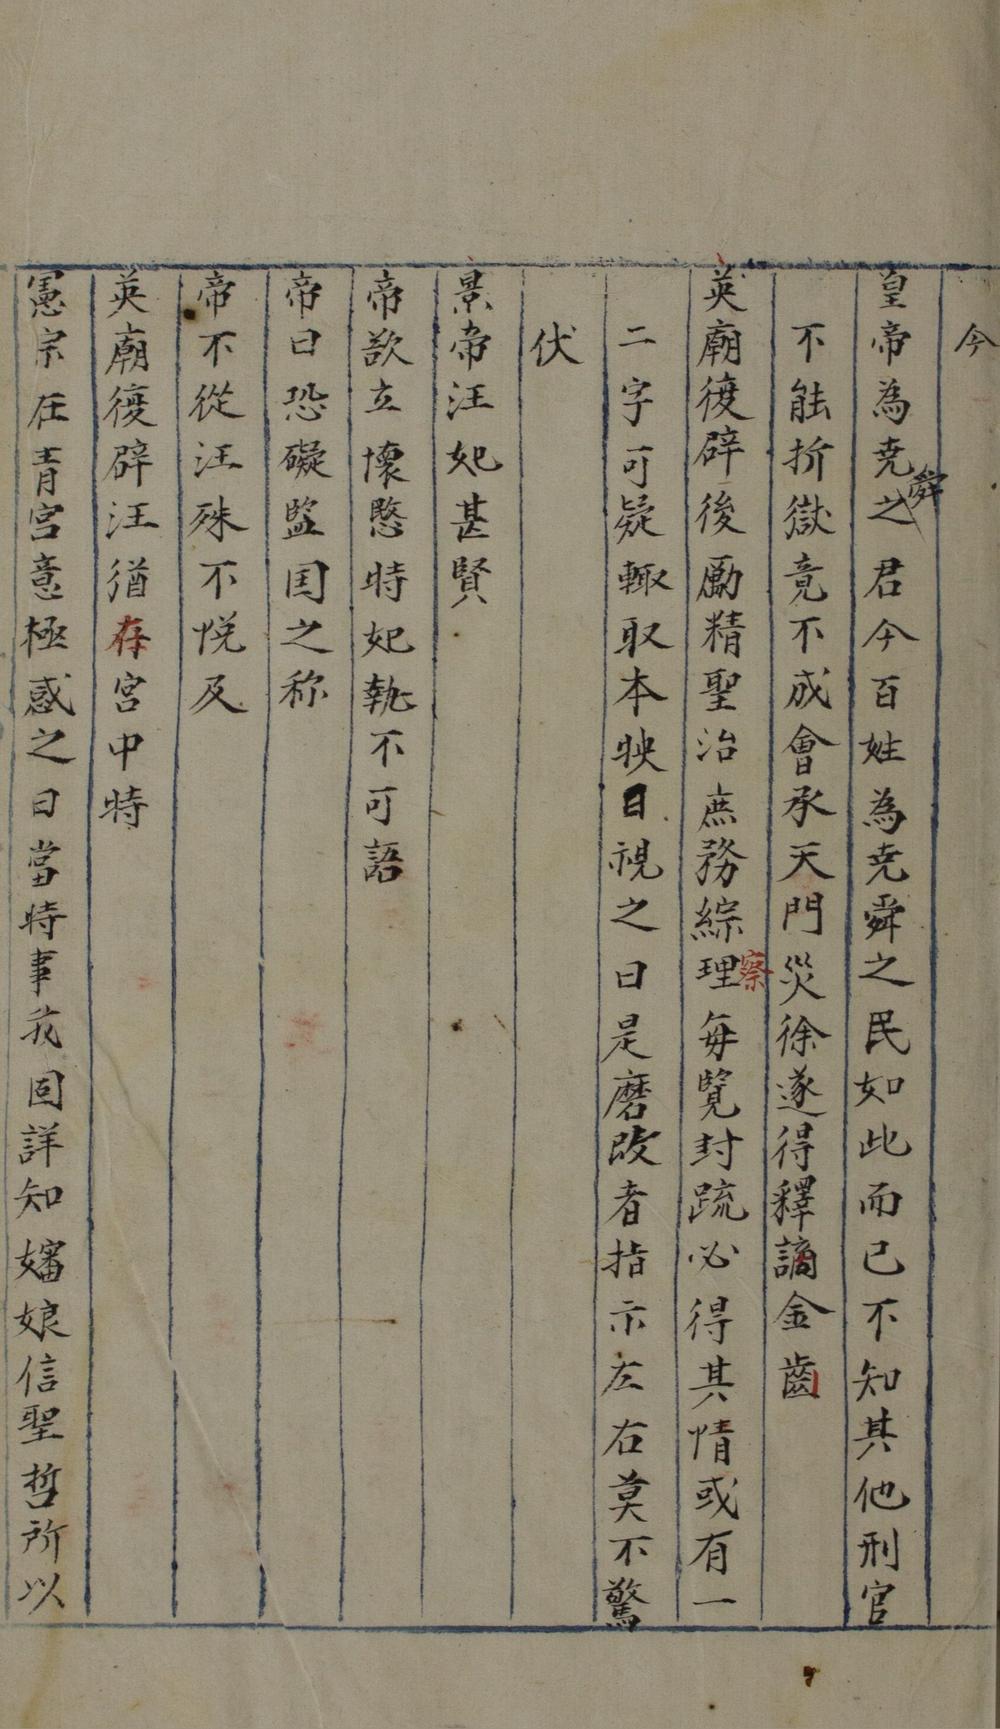 今
皇帝為尭舜之君今百姓為尭舜之民如此而已不知其他刑官
不能折獄竟不成會承天門災徐遂得釋謫金齒
英廟復辟後勵精聖治庶務綜理察每覽封疏必得其情或有一
二字可疑輙取本映日視之曰是磨改者指示左右莫不驚
伏
景帝汪妃甚賢
帝欲立懷愍時妃執不可語
帝曰恐礙監国之称
帝不從汪殊不悅及
英廟復辟汪猶存宮中時
憲宗在青宮意極惑之曰當時事我固詳知嬸娘信聖哲所以